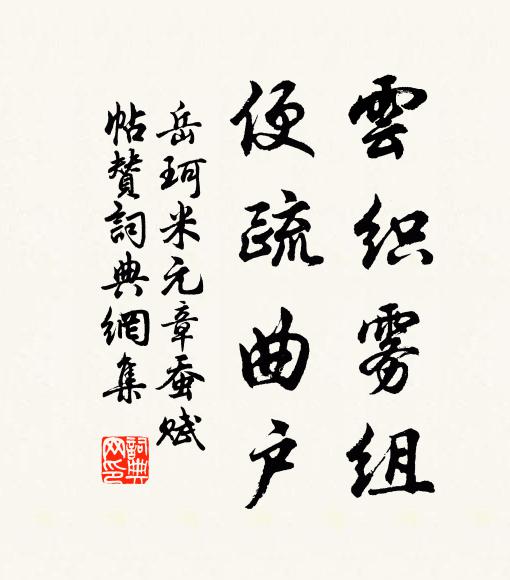 雲织雾组
便疏曲户
岳珂米元章蚕赋
帖贊詞典網集
詞典网印